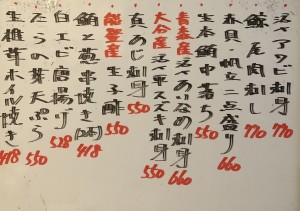 活〆アワビ 770
鯨尾肉刺し 770
赤貝・帆立二点盛り 660
生本鮪中落ち 550
青森産 活〆あいなめ刺身 660
大分産 活〆平スズキ刺身 550
真あじ刺身 550
能登産 生子酢
鮪と葱串焼き(2本) 418
白エビ唐揚げ 528
たらの芽天ぷら 550
生椎茸ホイル焼き 418